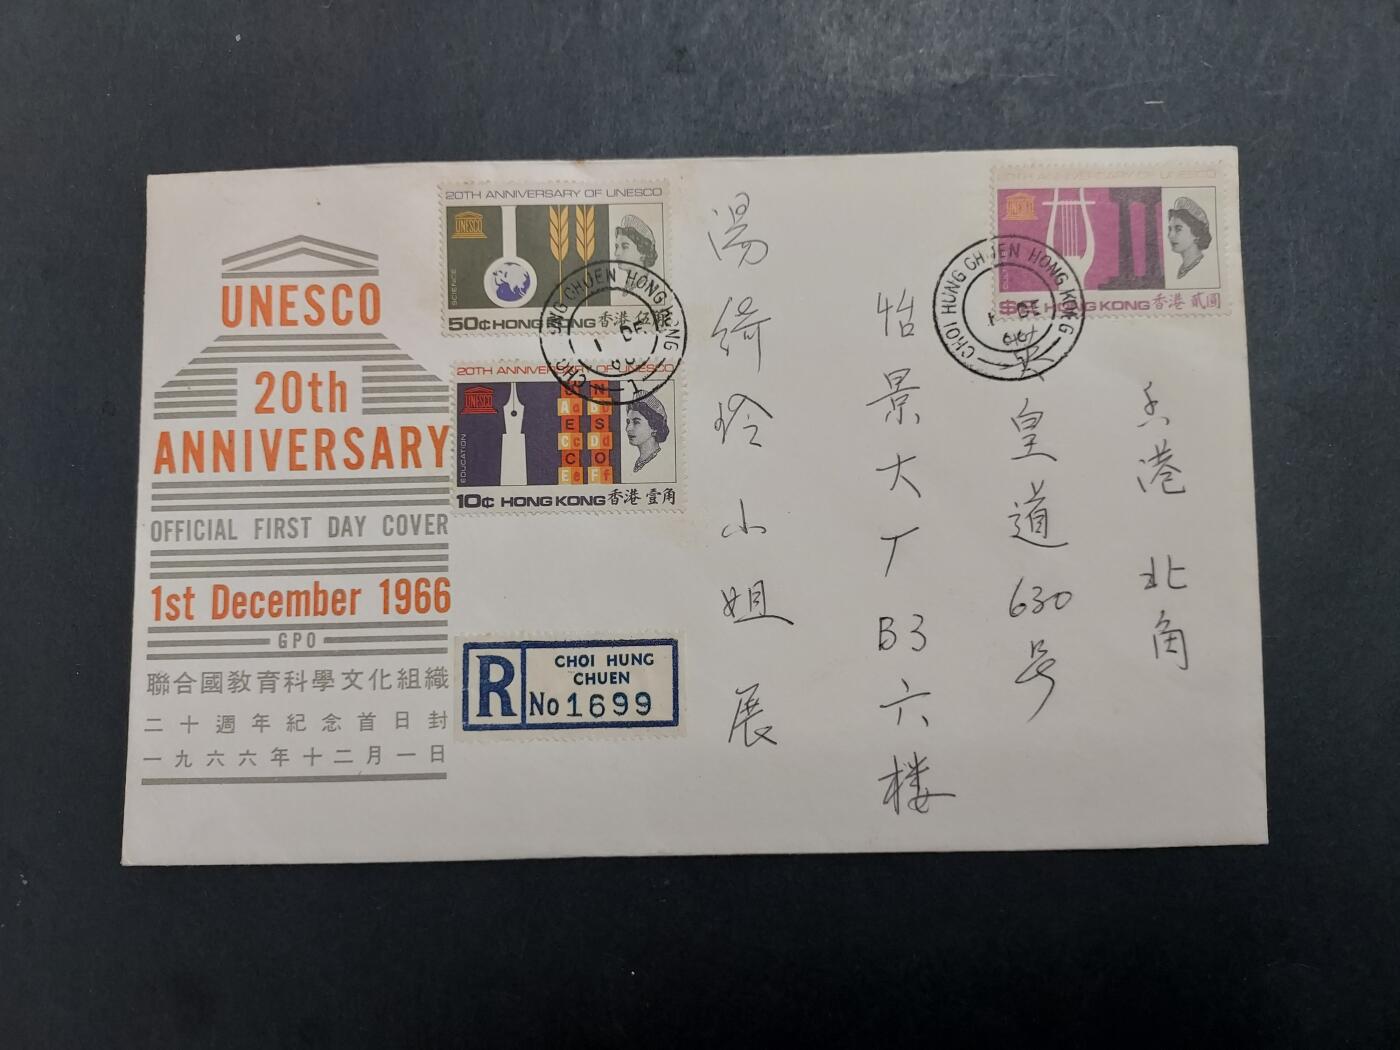 UNESCO
20th
ANNIVERSARY
OFFICIAL FIRST DAY COVER
1st December 1966
GPO
聯合國教育科學文化組織
二十週年紀念首日封
一九六六年十二月一日
20TH ANNIVERSARY OF UNESCO
UNESCO
SCIENCE
50¢ HONG KONG 香港 伍角
20TH ANNIVERSARY OF UNESCO
UNESCO
EDUCATION
10¢ HONG KONG 香港 壹角
R
CHOI HUNG
CHUEN
No 1699
20TH ANNIVERSARY OF UNESCO
UNESCO
HONG KONG 香港 貳圓
CHOI HUNG CHUEN HONG KONG
1 DE
66
CHUEN HONG KONG
1 DE
66
香港北角
英皇道630号
怡景大厂B3六楼
湯綺玲小姐展